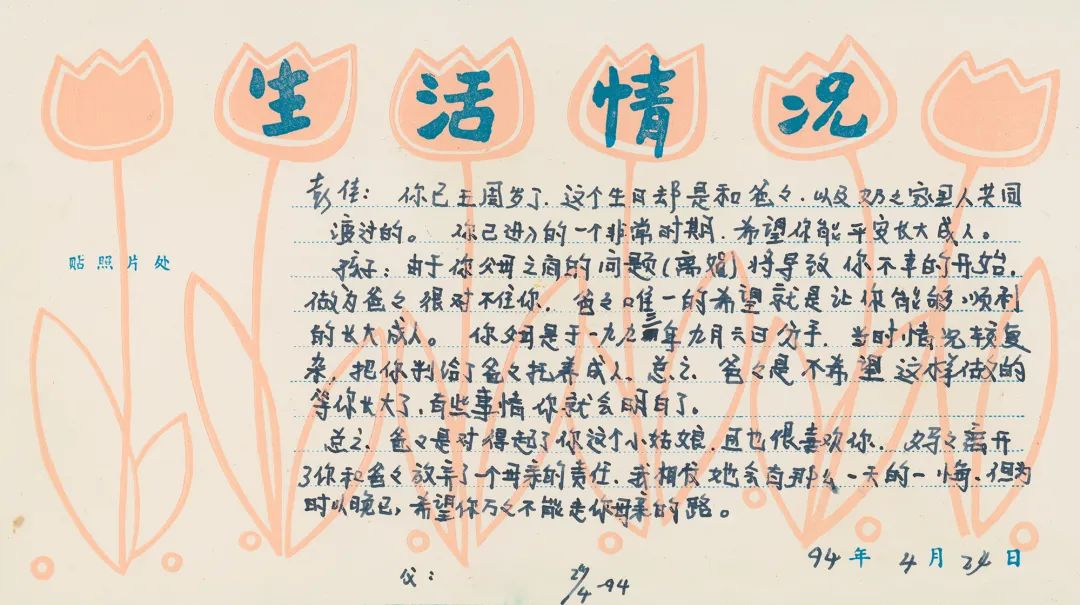 生活情况
彭佳：你已三周岁了，这个生日却是和爸々，以及奶々家里人共同
渡过的。你已进入的一个非常时期，希望你能平安长大成人。
贴照片处
孩子：由于你父母之间的问题(离婚)将导致你不幸的开始，
做为爸々很对不住你，爸々唯一的希望就是让你能够顺利
的长大成人。你妈是于一九九三年九月六日分手，当时情况较复
杂，把你判给了爸々抚养成人，总之，爸々是不希望这样做的
等你长大了，有些事情你就会明白了。
总之，爸々是对得起了你这个小姑娘，且也很喜欢你，妈々离开
了你和爸々放弃了一个母亲的责任，我相信她会有那么一天的一悔，但为
时以晚已，希望你万々不能走你母亲的路。
94年4月24日
父：
24/4-94